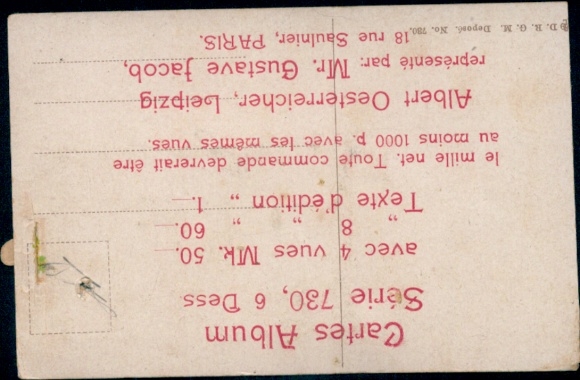 Cartes Album
Série 730, 6 Dess
avec 4 vues Mk. 50.
„ 8 „ „ 60.
Texte d'édition „ 1.
le mille net. Toute commande devrerait être
au moins 1000 p. avec les mêmes vues.
Albert Oesterreicher, Leipzig
représenté par: Mr. Gustave Jacob,
18 rue Saulnier, PARIS.
D. R. G. M. Deposé. No. 730.